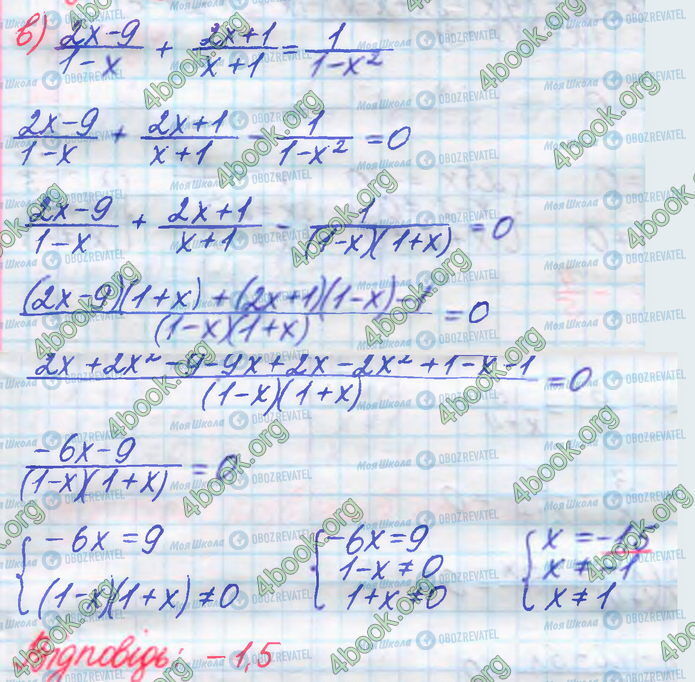 в) (2x-9)/(1-x) + (2x+1)/(x+1) = 1/(1-x²)
(2x-9)/(1-x) + (2x+1)/(x+1) - 1/(1-x²) = 0
(2x-9)/(1-x) + (2x+1)/(x+1) - 1/((1-x)(1+x)) = 0
((2x-9)(1+x)+(2x+1)(1-x)-1)/((1-x)(1+x)) = 0
(2x+2x²-9-9x+2x-2x²+1-x-1)/((1-x)(1+x)) = 0
(-6x-9)/((1-x)(1+x)) = 0
{ -6x=9 { -6x=9 { x=-1,5
(1-x)(1+x)≠0 1-x≠0 x≠-1
1+x≠0 x≠1
Відповідь: -1,5
4book.org
Моя Школа
OBOZREVATEL